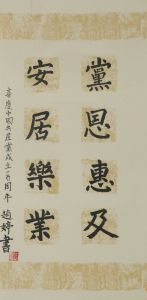 黨恩惠及
安居樂業
喜慶中國共產黨成立一百周年
趙婷書